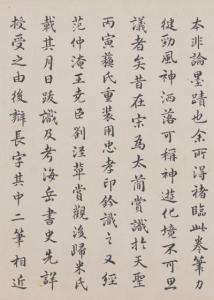 本非論墨蹟也余所得褚臨此拳筆力
健勁風神洒落可稱神遊化境不可思
議者矣昔在宋為太簡賞識於天聖
丙寅蘇氏重裝用忠孝印鈐識之又經
范仲淹王堯臣劉涇草賞觀後歸米氏
載其月日跋識及考海岳書史先詳
授受之由後辯長字其中二筆相近